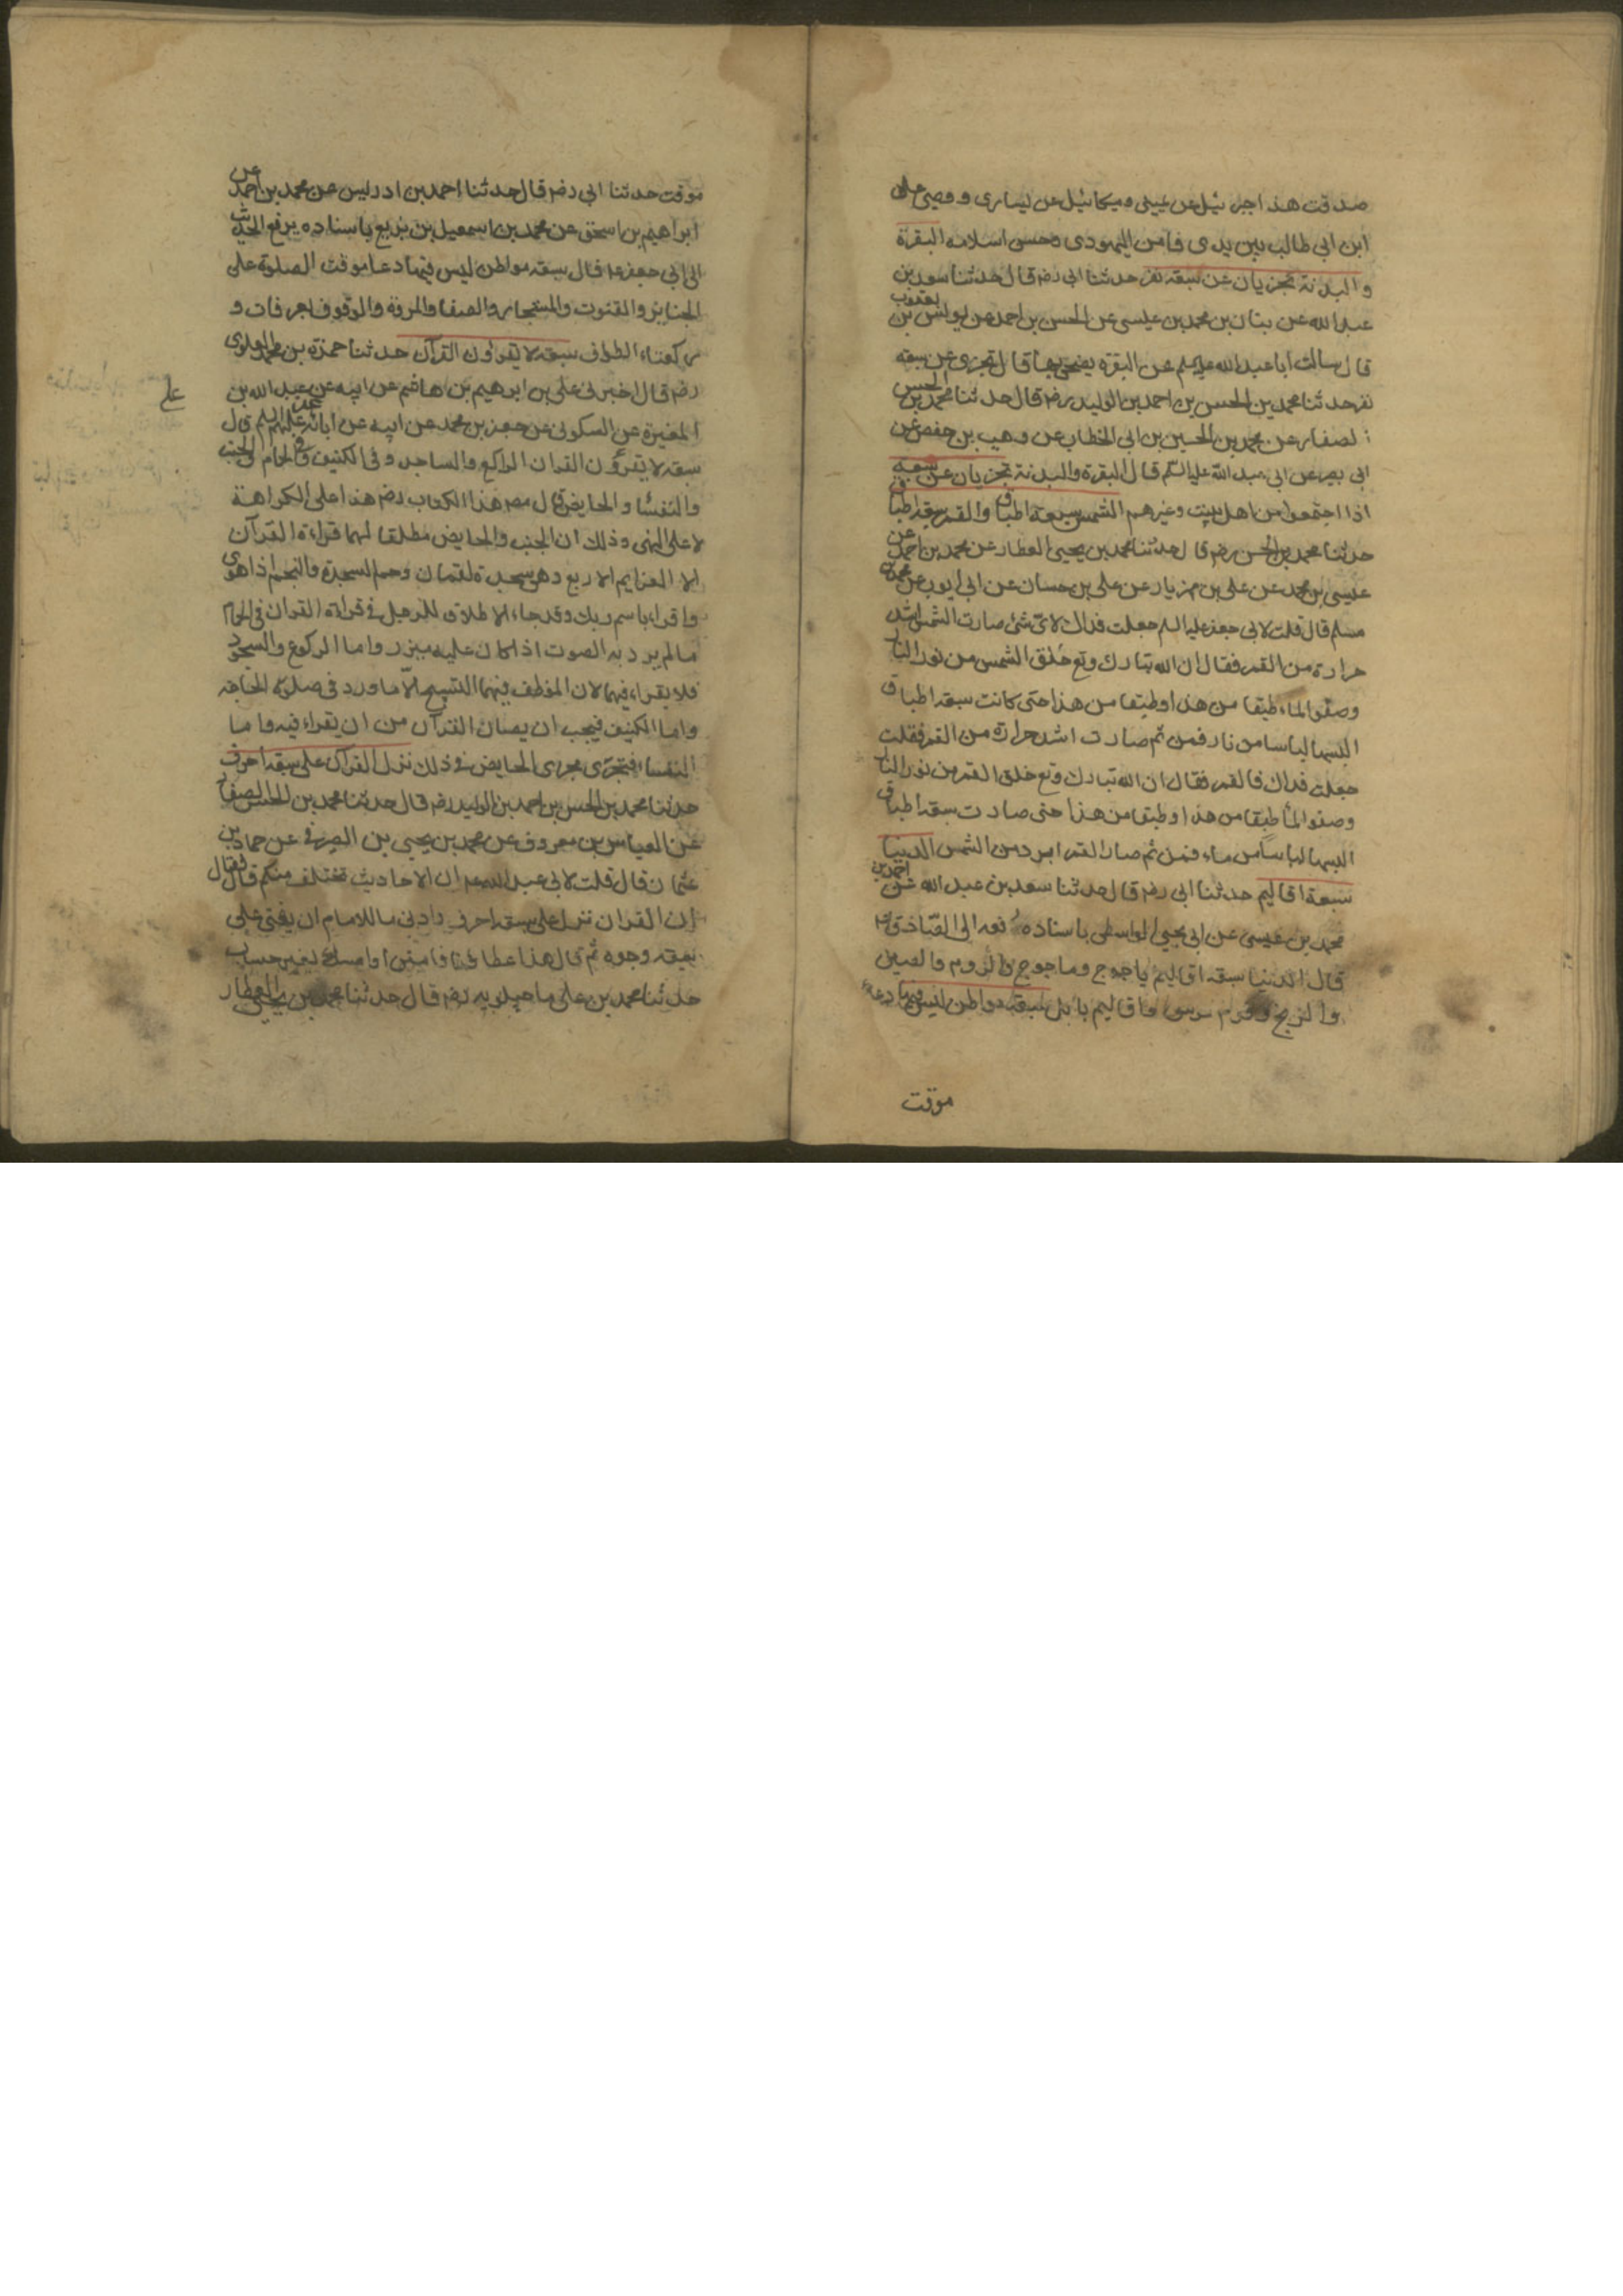 صدقت هذا جبرئيل عن يميني وميكائيل عن يساري ووصيي علي
ابن ابي طالب بين يدي فامن اليهودي وحسن اسلامه البقرة
والبدنة تجزيان عن سبعة نفر حدثنا ابي رضه قال حدثنا سعد بن
عبد الله عن بنان بن محمد بن عيسى عن الحسن بن احمد عن يونس بن يعقوب
قال سالت ابا عبد الله عليه السلم عن البقرة يضحى بها قال تجزي عن سبعة
نفر حدثنا محمد بن الحسن بن احمد بن الوليد رضه قال حدثنا محمد بن الحسن
الصفار عن محمد بن الحسين بن ابي الخطاب عن وهيب بن حفص عن
ابي بصير عن ابي عبد الله عليه السلم قال البقرة والبدنة تجزيان عن سبعة
اذا اجتمعوا من اهل بيت وغيرهم الشمس سبعة اطباق والقمر سبعة اطباق
حدثنا محمد بن الحسن رضه قال حدثنا محمد بن يحيى العطار عن محمد بن احمد عن
عيسى بن محمد عن علي بن مهزيار عن علي بن حسان عن ابي ايوب عن محمد بن
مسلم قال قلت لابي جعفر عليه السلم جعلت فداك لاي شئ صارت الشمس اشد
حرارة من القمر فقال ان الله تبارك وتع خلق الشمس من نور النار
وصفو الماء طبقا من هذا وطبقا من هذا حتى كانت سبعة اطباق
البسها لباسا من نار فمن ثم صارت اشد حرارة من القمر فقلت
جعلت فداك فالقمر فقال ان الله تبارك وتع خلق القمر من نور النار
وصفو الماء طبقا من هذا وطبقا من هذا حتى صارت سبعة اطباق
البسها لباسا من ماء فمن ثم صار القمر ابرد من الشمس الدنيا
سبعة اقاليم حدثنا ابي رضه قال حدثنا سعد بن عبد الله عن احمد بن
محمد بن عيسى عن ابي يحيى الواسطي باسناده رفعه الى الصادق ع
قال الدنيا سبعة اقاليم ياجوج وماجوج والروم والصين
والزنج وقوم موسى واقاليم بابل سبعة مواطن ليس فيها دعاء
موقت
موقت حدثنا ابي رضه قال حدثنا احمد بن ادريس عن محمد بن احمد عن
ابراهيم بن اسحق عن محمد بن اسمعيل بن بزيع باسناده يرفع الحديث
الى ابي جعفر ع قال سبعة مواطن ليس فيها دعا موقت الصلوة على
الجنايز والقنوت والمستجار والصفا والمروة والوقوف بعرفات و
ركعتاء الطواف سبعة لا يقراون القرآن حدثنا حمزة بن محمد العلوي
رضه قال اخبرني علي بن ابرهيم بن هاشم عن ابيه عن عبد الله بن
المغيرة عن السكوني عن جعفر بن محمد عن ابيه عن ابائه عن علي عليهم السلم قال
علي
سبعة لا يقرؤن القران الراكع والساجد وفي الكنيف وفي الحمام والجنب
والنفساء والحايض قال مصنف هذا الكتاب رضه هذا على الكراهة
لا على النهي وذلك ان الجنب والحايض مطلقا لهما قراءة القرآن
الا العزايم الاربع وهي سجدة لقمان وحم السجدة والنجم اذا هوى
واقراء باسم ربك وقد جاء الاطلاق للرجل في قراءة القران في الحمام
مالم يرد به الصوت اذا كان عليه ميزر واما الركوع والسجود
فلا يقراء فيهما لان الموظف فيهما التسبيح الا ما ورد في صلوة الحاجة
واما الكنيف فيجب ان يصان القرآن من ان يقراء فيه واما
النفساء فتجري مجرى الحايض في ذلك نزل القرآن على سبعة احرف
حدثنا محمد بن الحسن بن احمد بن الوليد رضه قال حدثنا محمد بن الحسن الصفار
عن العباس بن معروف عن محمد بن يحيى بن الصيرفي عن حماد بن
عثمان قال قلت لابي عبد الله ع ان الاحاديث تختلف منكم قال فقال
ان القران نزل على سبعة احرف وادنى ما للامام ان يفتي على
سبعة وجوه ثم قال هذا عطاؤنا فامنن او امسك بغير حساب
حدثنا محمد بن علي ماجيلويه رضه قال حدثنا محمد بن يحيى العطار